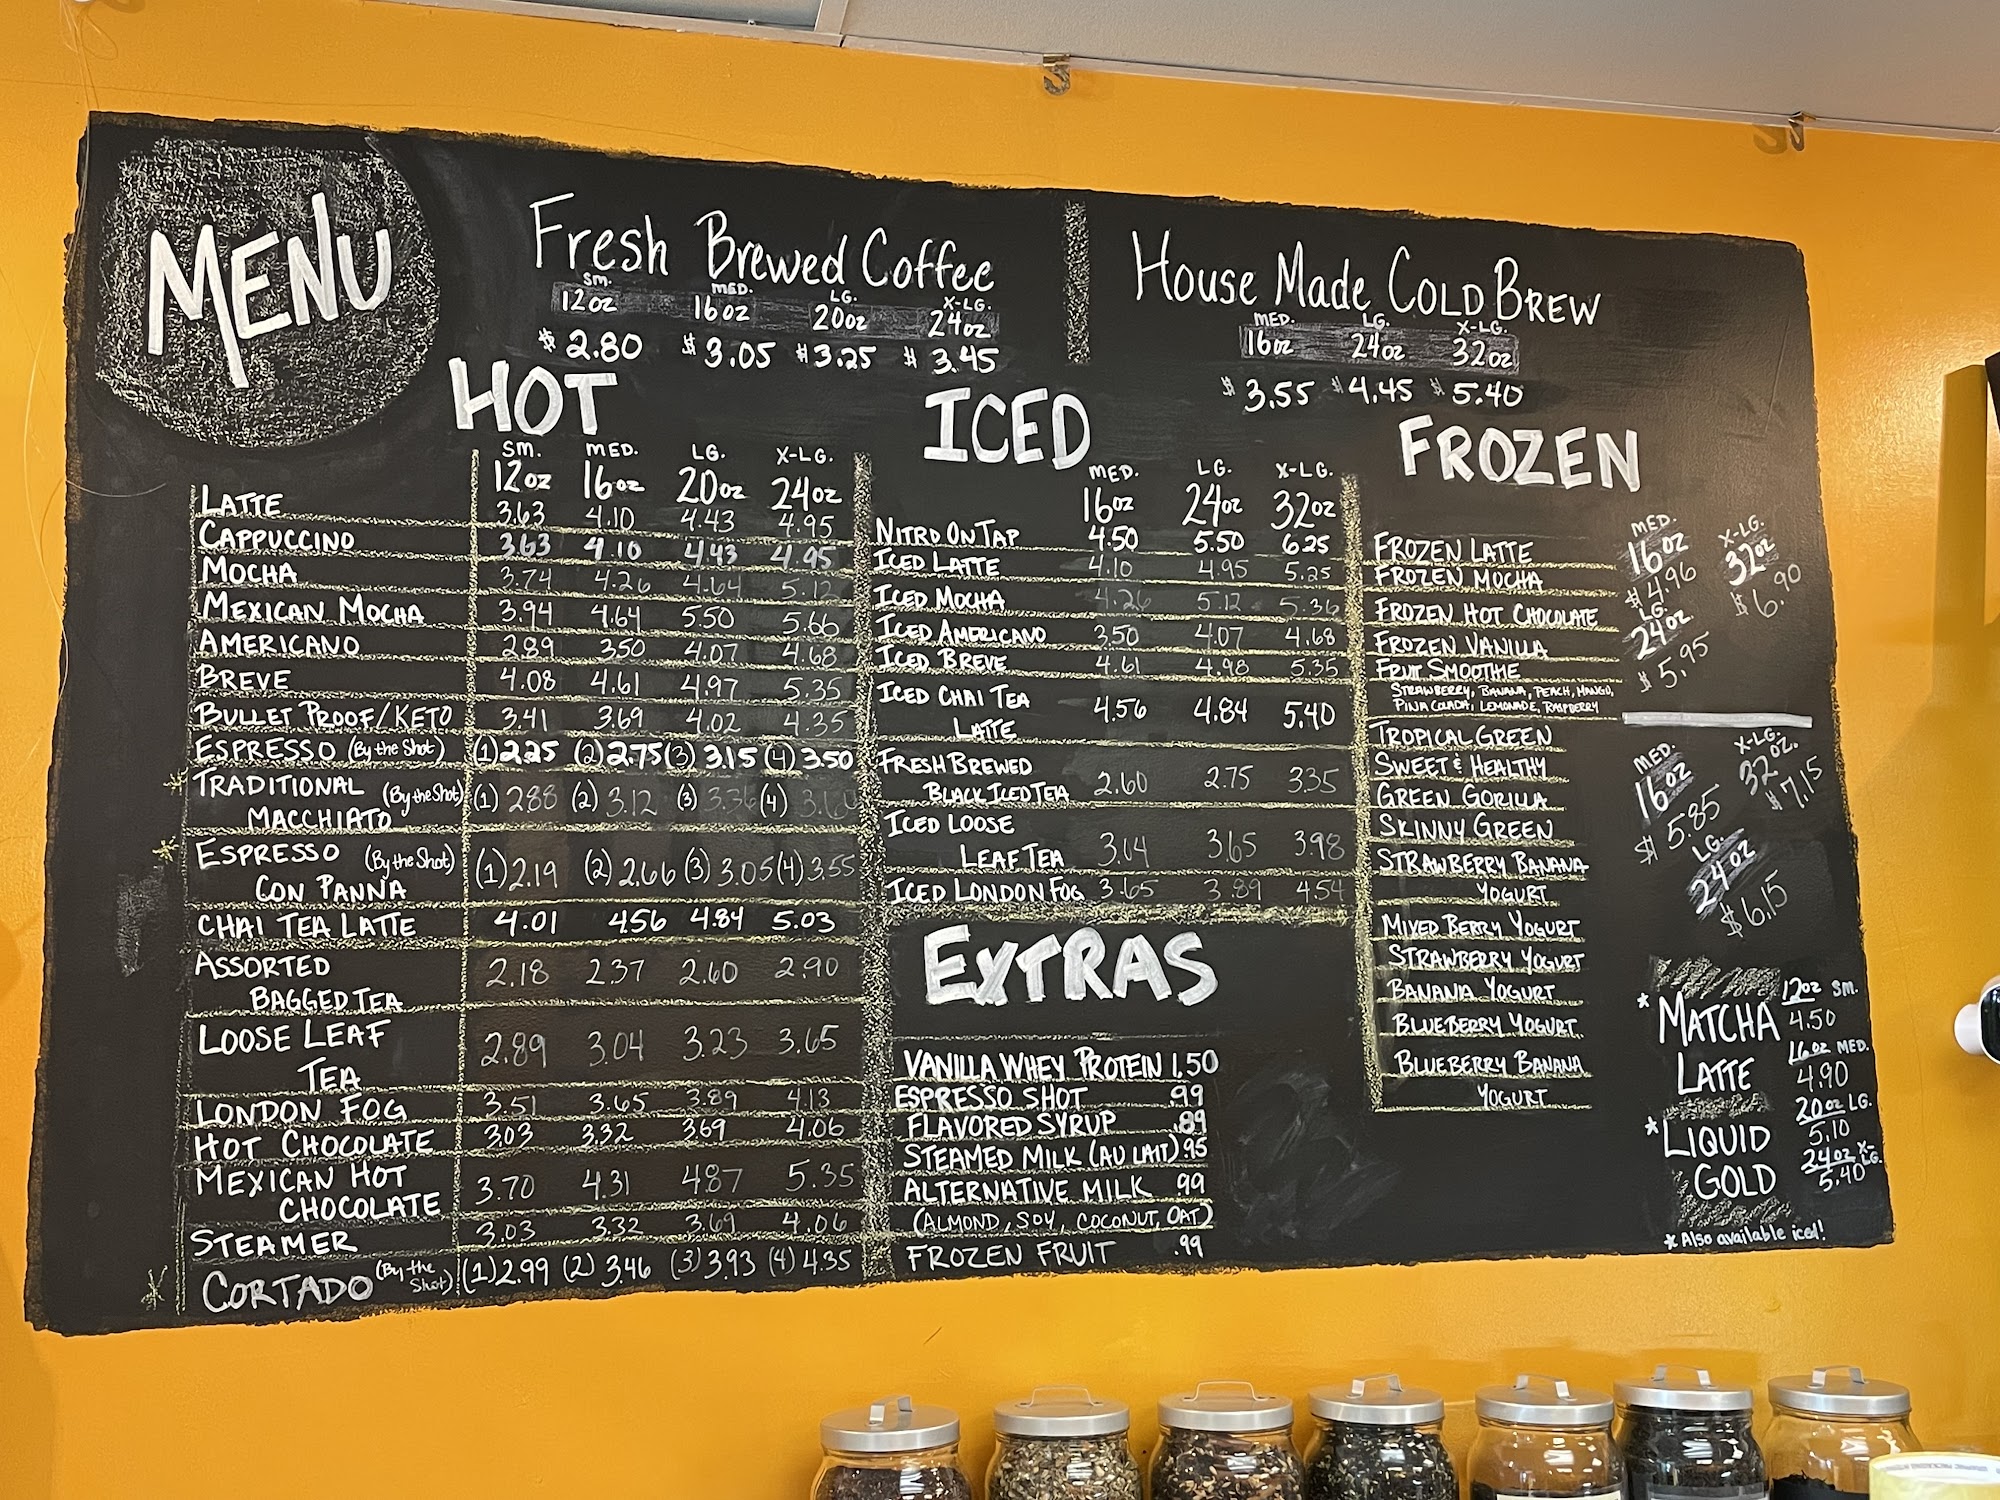 MENU
Fresh Brewed Coffee
SM. MED. LG. X-LG.
12oz 16oz 20oz 24oz
$2.80 $3.05 $3.25 $3.45
House Made COLD BREW
MED. LG. X-LG.
16oz 24oz 32oz
$3.55 $4.45 $5.40
HOT
SM. MED. LG. X-LG.
12oz 16oz 20oz 24oz
LATTE 3.63 4.10 4.43 4.95
CAPPUCCINO 3.63 4.10 4.43 4.95
MOCHA 3.74 4.26 4.64 5.12
MEXICAN MOCHA 3.94 4.64 5.50 5.66
AMERICANO 2.89 3.50 4.07 4.68
BREVE 4.08 4.61 4.97 5.35
BULLET PROOF/KETO 3.41 3.69 4.02 4.35
ESPRESSO (By the Shot) (1) 2.25 (2) 2.75 (3) 3.15 (4) 3.50
* TRADITIONAL (By the Shot) (1) 2.88 (2) 3.12 (3) 3.36 (4)
MACCHIATO
* ESPRESSO (By the Shot) (1) 2.19 (2) 2.66 (3) 3.05 (4) 3.55
CON PANNA
CHAI TEA LATTE 4.01 4.56 4.84 5.03
ASSORTED
BAGGED TEA 2.18 2.37 2.60 2.90
LOOSE LEAF
TEA 2.89 3.04 3.23 3.65
LONDON FOG 3.51 3.65 3.89 4.13
HOT CHOCOLATE 3.03 3.32 3.69 4.06
MEXICAN HOT
CHOCOLATE 3.70 4.31 4.87 5.35
STEAMER 3.03 3.32 3.69 4.06
* CORTADO (By the Shot) (1) 2.99 (2) 3.46 (3) 3.93 (4) 4.35
ICED
MED. LG. X-LG.
16oz 24oz 32oz
NITRO ON TAP 4.50 5.50 6.25
ICED LATTE 4.10 4.95 5.25
ICED MOCHA 4.26 5.12 5.36
ICED AMERICANO 3.50 4.07 4.68
ICED BREVE 4.61 4.98 5.35
ICED CHAI TEA
LATTE 4.56 4.84 5.40
FRESH BREWED
BLACK ICED TEA 2.60 2.75 3.35
ICED LOOSE
LEAF TEA 3.04 3.65 3.98
ICED LONDON FOG 3.65 3.89 4.54
EXTRAS
VANILLA WHEY PROTEIN 1.50
ESPRESSO SHOT .99
FLAVORED SYRUP .89
STEAMED MILK (AU LAIT) .95
ALTERNATIVE MILK .99
(ALMOND, SOY, COCONUT, OAT)
FROZEN FRUIT .99
FROZEN
FROZEN LATTE
FROZEN MOCHA
FROZEN HOT CHOCOLATE
FROZEN VANILLA
FRUIT SMOOTHIE
STRAWBERRY, BANANA, PEACH, MANGO,
PINA COLADA, LEMONADE, RASPBERRY
MED.
16oz
$4.96
LG.
24oz
$5.95
X-LG.
32oz
$6.90
TROPICAL GREEN
SWEET & HEALTHY
GREEN GORILLA
SKINNY GREEN
STRAWBERRY BANANA
YOGURT
MIXED BERRY YOGURT
STRAWBERRY YOGURT
BANANA YOGURT
BLUEBERRY YOGURT
BLUEBERRY BANANA
YOGURT
MED.
16oz
$5.85
LG.
24oz
$6.15
X-LG.
32oz.
$7.15
* MATCHA
LATTE
* LIQUID
GOLD
12oz SM.
4.50
16oz MED.
4.90
20oz LG.
5.10
24oz X-LG.
5.40
* Also available iced!